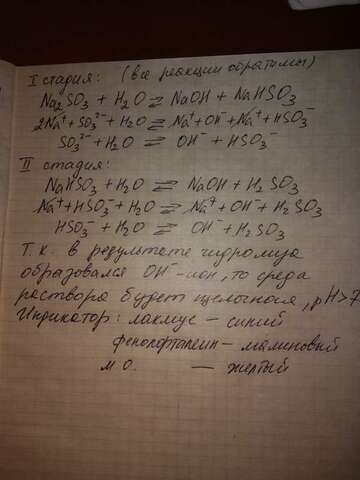 I стадия: (все реакции обратимы)
Na₂SO₃ + H₂O ⇄ NaOH + NaHSO₃
2Na⁺ + SO₃²⁻ + H₂O ⇄ Na⁺ + OH⁻ + Na⁺ + HSO₃⁻
SO₃²⁻ + H₂O ⇄ OH⁻ + HSO₃⁻
II стадия:
NaHSO₃ + H₂O ⇄ NaOH + H₂SO₃
Na⁺ + HSO₃⁻ + H₂O ⇄ Na⁺ + OH⁻ + H₂SO₃
HSO₃⁻ + H₂O ⇄ OH⁻ + H₂SO₃
Т.к. в результате гидролиза
образовался OH⁻-ион, то среда
раствора будет щелочная, pH>7
Индикатор: лакмус – синий
фенолфталеин – малиновый
м.о. – желтый